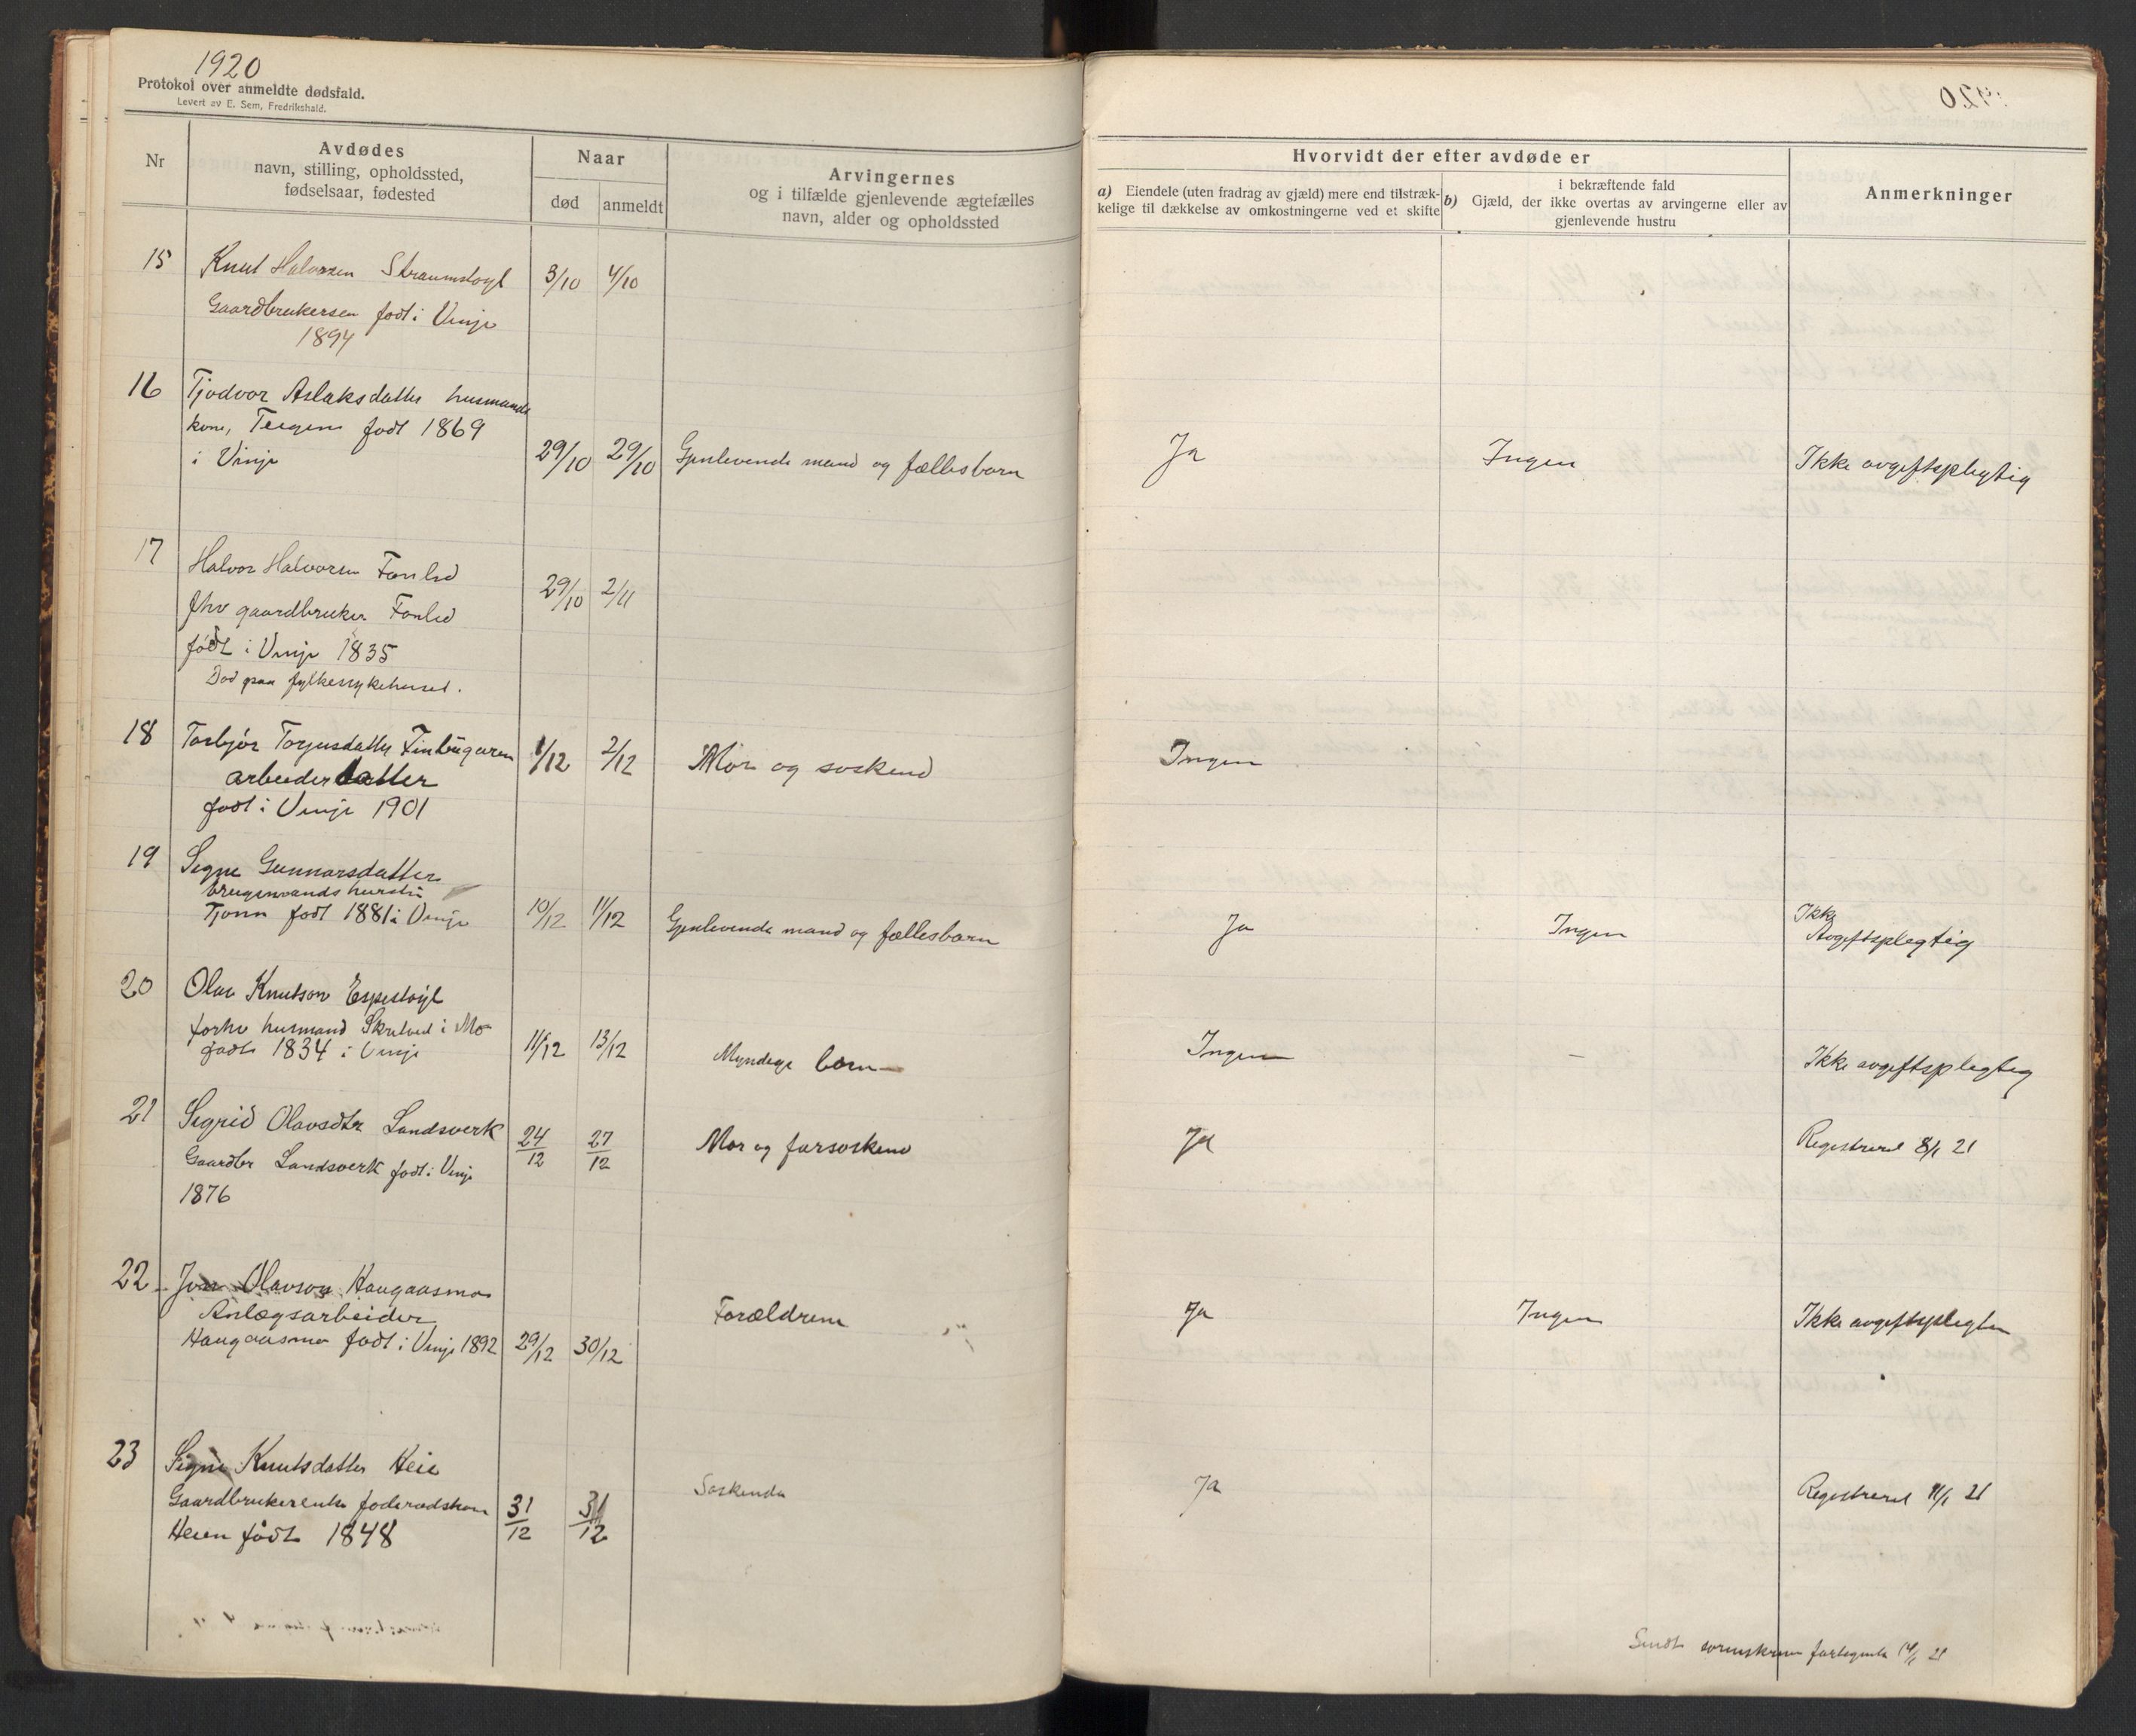 1920
Protokol over anmeldte dødsfald.
Levert av E. Sem, Fredrikshald.
Nr
Avdødes
navn, stilling, opholdssted,
fødselsaar, fødested
Naar
død
anmeldt
Arvingernes
og i tilfælde gjenlevende ægtefælles
navn, alder og opholdssted
Hvorvidt der efter avdøde er
a) Eiendele (uten fradrag av gjæld) mere end tilstræk-
kelige til dækkelse av omkostningerne ved et skifte
i bekræftende fald
b) Gjæld, der ikke overtas av arvingerne eller av
gjenlevende hustru
Anmerkninger
15 Knut Halvorsen Straumstøyl 3/10 4/10
Gaardbrukersøn født i Vinje
1894
16 Tjodvor Aslaksdatter husmands
kone, Teigen født 1869
i Vinje 29/10 29/10 Gjenlevende mand og fællesbarn Ja Ingen Ikke avgiftspligtig
17 Halvor Halvorsen Fonlid 29/10 2/11
fhv gaardbruker Fonlid
født i Vinje 1835
Død paa fylkessykehuset.
18 Torbjør Torjusdatter 1/12 2/12 Mor og søskend Ingen
arbeiderdatter
født i Vinje 1901
19 Signe Gunnarsdatter
brugsmands hustru
Tjønn født 1881 i Vinje 10/12 11/12 Gjenlevende mand og fællesbarn Ja Ingen Ikke
Avgiftspligtig
20 Olav Knutson Espestøyl
forhv husmand Skretveit i Mo
født 1834 i Vinje 11/12 13/12 Myndige børn Ingen — Ikke avgiftspligtig
21 Sigrid Olavsdtr Landsverk 24/12 27/12 Mor og farsøskend Ja Registreret 8/1 21
Gaardbr Landsverk født i Vinje
1876
22 Olavson Haugaasmo
Anlægsarbeider Forældrene Ja Ingen Ikke avgiftspligtig
Haugaasmo født i Vinje 1892 29/12 30/12
23 Signe Knutsdatter Heie
Gaardbrukerenke føderådskone 31/12 31/12 Søskende Ja Registreret 11/1 21
Heien født 1848
Sendt sorenskriveren fortegnelse 14/1 21